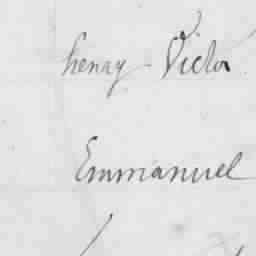 henry Victor
Emmanuel